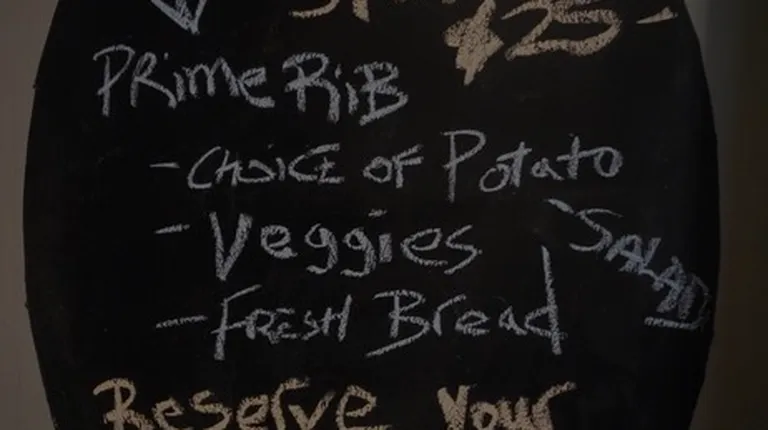 $25-
PRime RiB
- CHOICE OF Potato
- Veggies
- SALAD
- FRESH Bread
Reserve Your